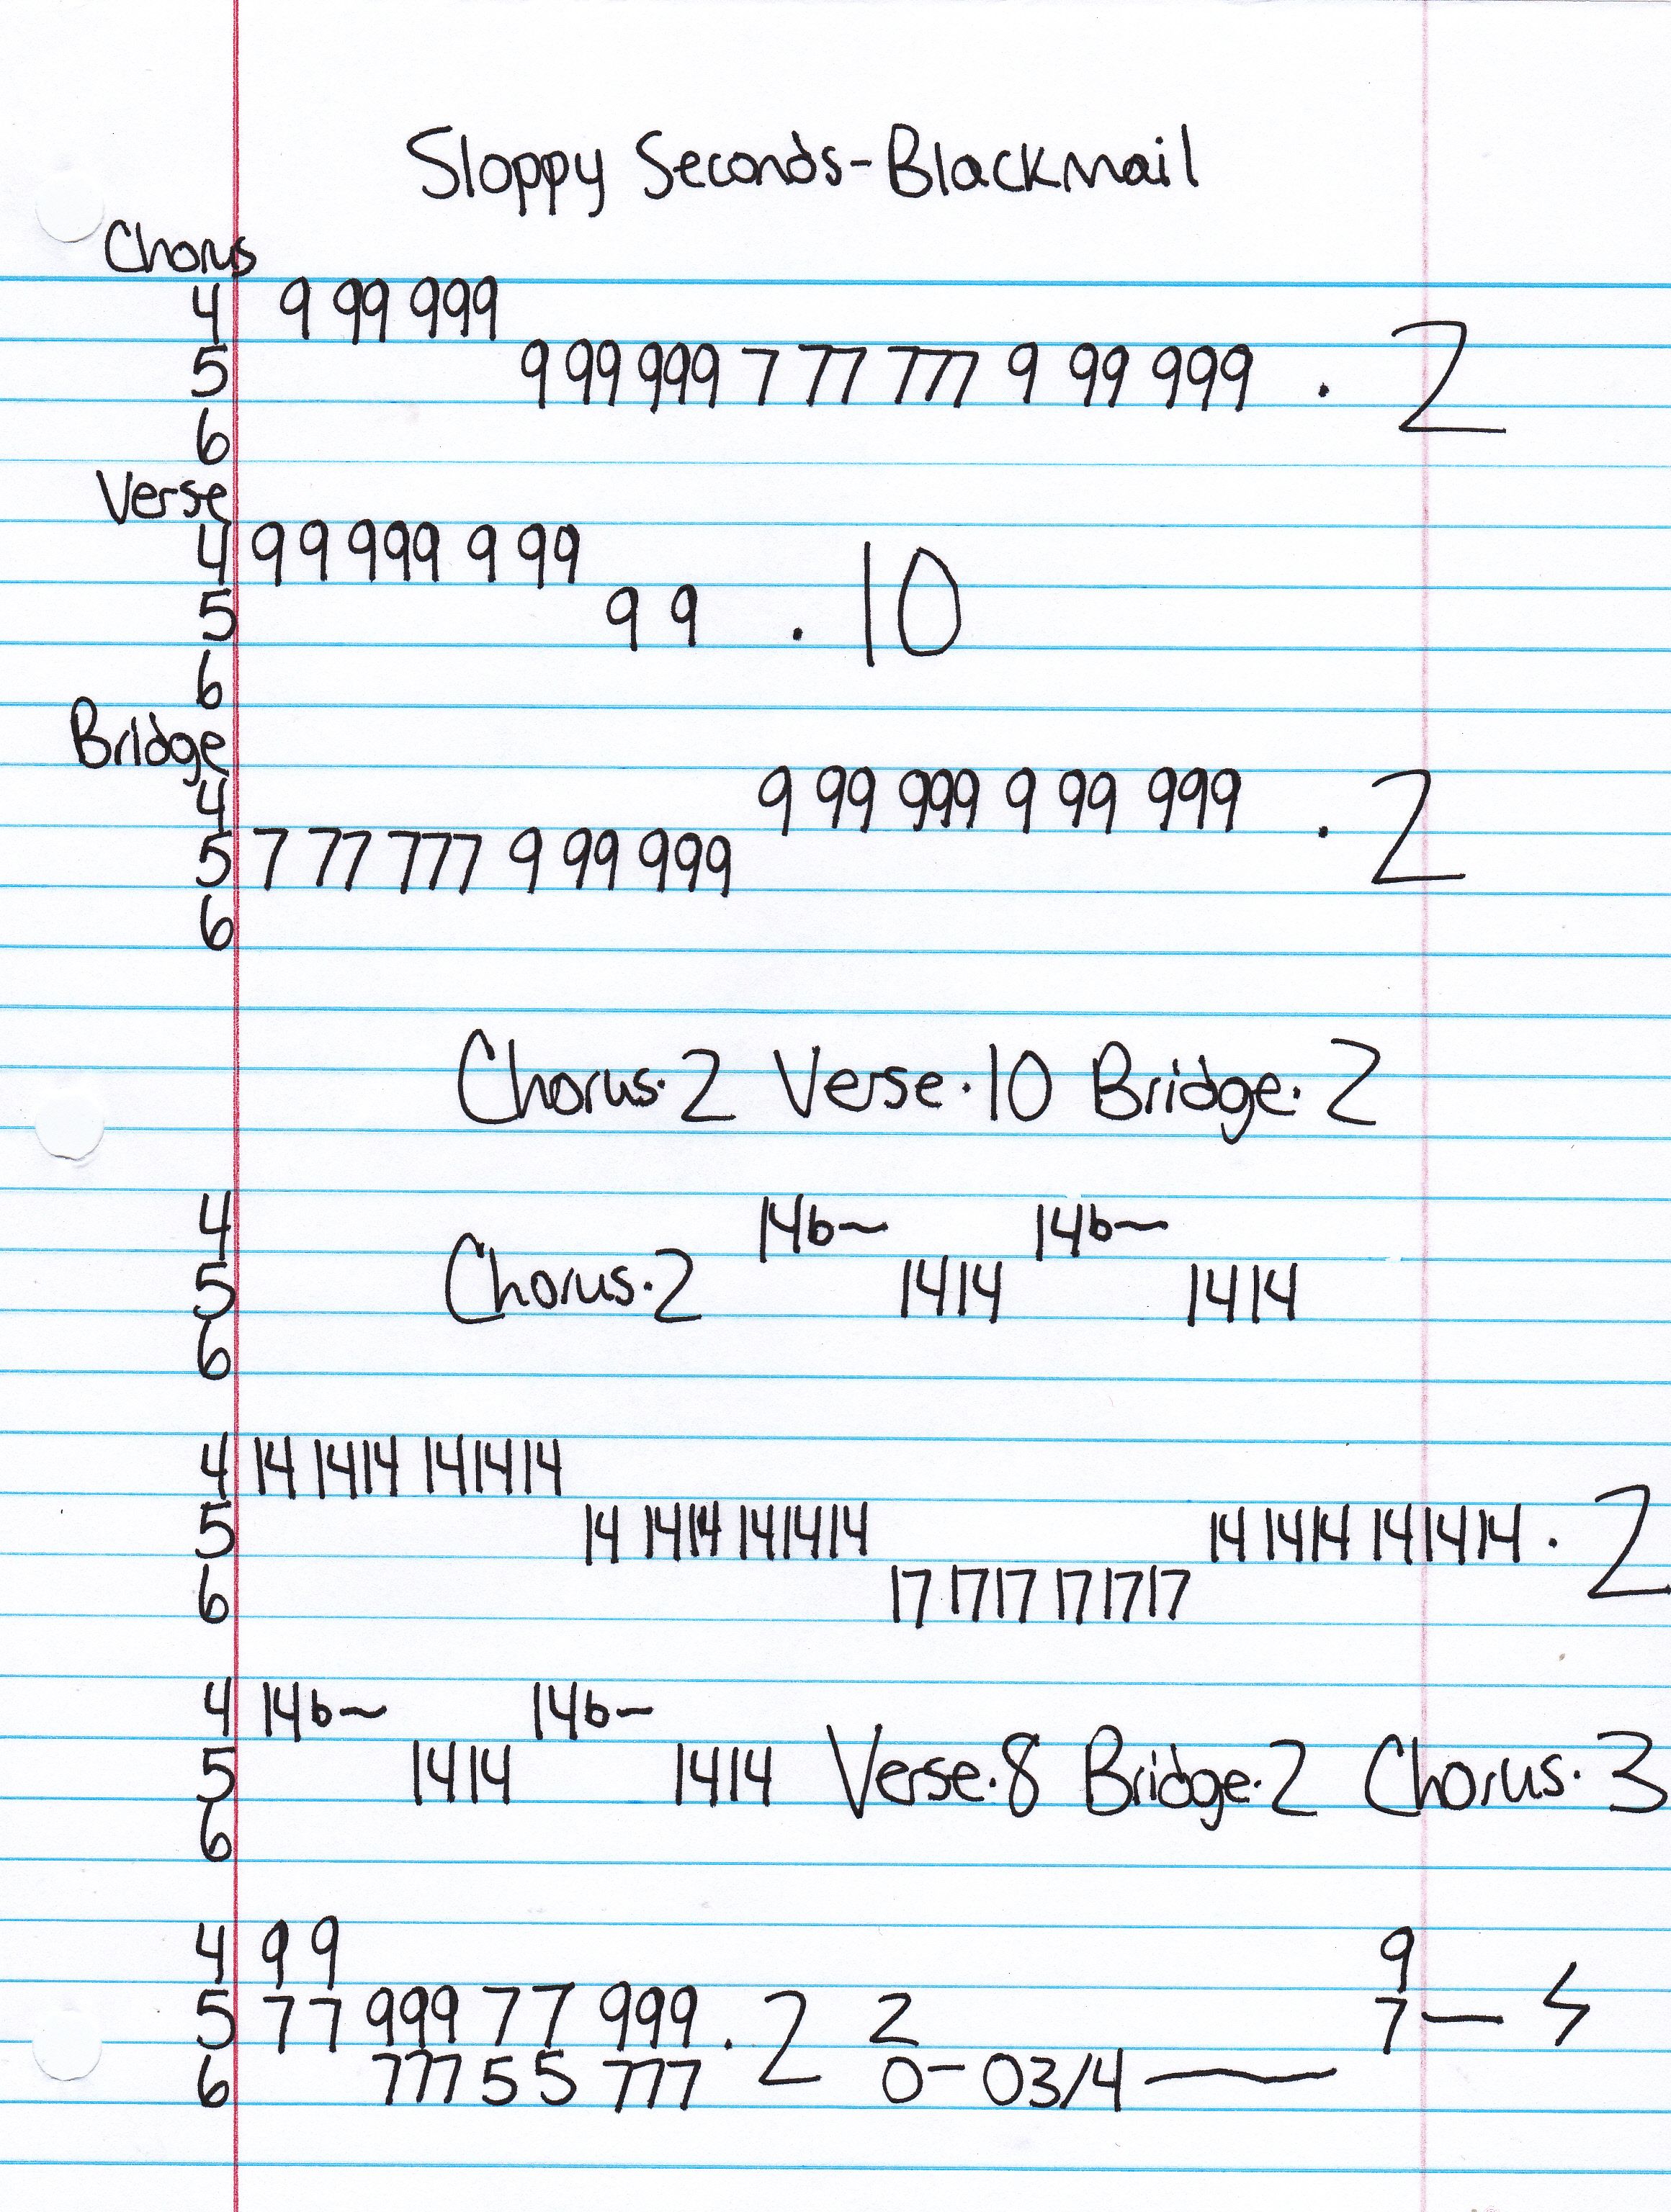 Sloppy Seconds-Blackmail
Chorus
4 9 99 999
5 9 999 999 7 77 777 9 99 999 . 2
6
Verse
4 9 9 999 9 99
5 9 9 . 10
6
Bridge
4 9 99 999 9 99 999 . 2
5 7 77 777 9 99 999
6
Chorus·2 Verse·10 Bridge·2
4 14b~ 14b~
5 Chorus·2 1414 1414
6
4 14 1414 141414
5 14 1414 141414 14 1414 141414 . 2
6 17 1717 171717
4 14b~ 14b~
5 1414 1414 Verse·8 Bridge·2 Chorus·3
6
4 9 9 9
5 7 7 999 7 7 999 . 2 2 7—
6 777 5 5 777 0-03/4—